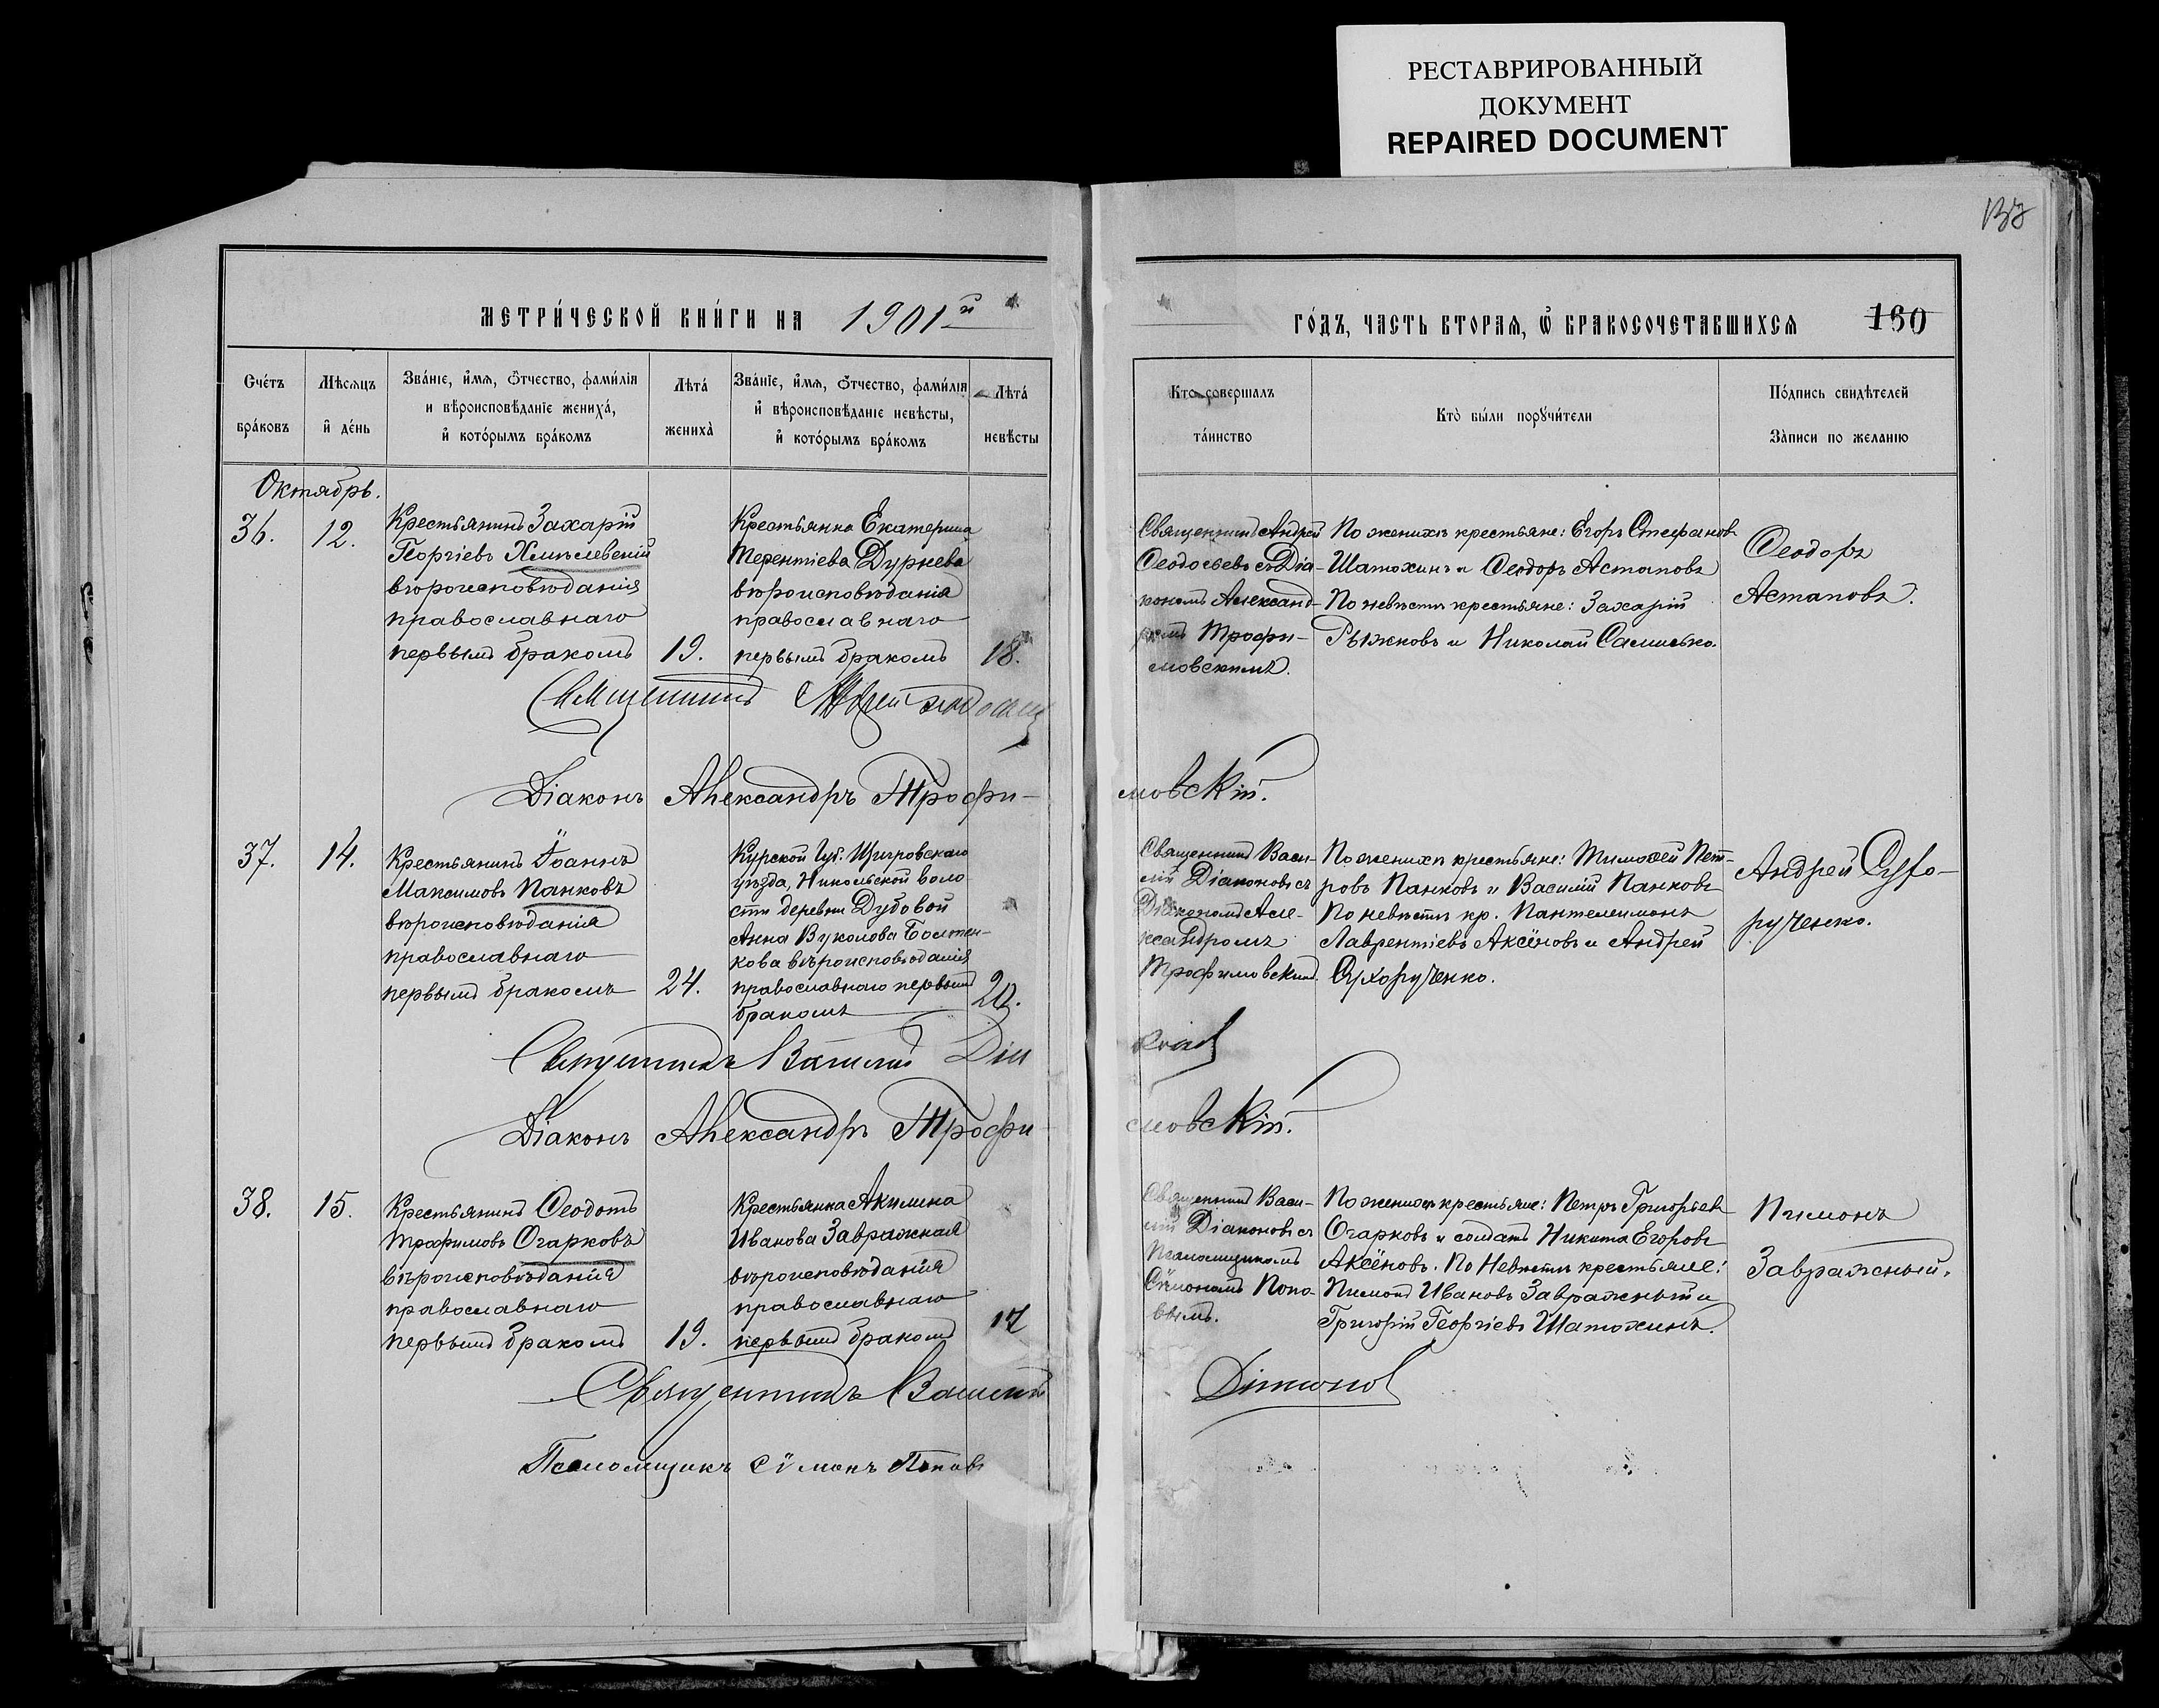 РЕСТАВРИРОВАННЫЙ
ДОКУМЕНТ
REPAIRED DOCUMENT
137
МЕТРИ́ЧЕСКОЙ КНИ́ГИ НА 1901й
ГО́ДЪ, ЧАСТЬ ВТОРАѦ, Ѿ БРАКОСОЧЕТАВШИХСѦ 160
Сче́тъ бра́ковъ
Мѣсѧцъ и де́нь
Зва́нїе, и́мѧ, ѻ́тчество, фами́лїѧ
и вѣроисповѣданїе жениха̀,
и кото́рымъ бра́комъ
Лѣта́ жениха̀
Зва́нїе, и́мѧ, ѻ́тчество, фами́лїѧ
и вѣроисповѣданїе невѣсты,
и кото́рымъ бра́комъ
Лѣта́ невѣсты
Кто совершалъ
та́инство
Кто̀ бы́ли порꙋчи́тели
По́дпись свидѣтелей
За̀писи по желанїю
Октябрь.
36.
12.
Крестьянинъ Захарій
Георгіевъ Хмѣлевскій
вѣроисповѣданія
православнаго
первымъ бракомъ
19.
Крестьянка Екатерина
Терентіева Дурнева
вѣроисповѣданія
православнаго
первымъ бракомъ
18.
Священникъ Андрей
Ѳеодосьевъ съ Діа-
кономъ Александ-
ромъ Трофи-
мовскимъ.
По женихѣ крестьяне: Егоръ Стефановъ
Шатохинъ и Ѳеодоръ Астаповъ
По невѣстѣ крестьяне: Захарій
Рыжковъ и Николай Самисько.
Ѳеодоръ
Астаповъ.
Священникъ Андрей
Діаконъ Александръ Трофи-
мовскій.
37.
14.
Крестьянинъ Іоаннъ
Максимовъ Панковъ
вѣроисповѣданія
православнаго
первымъ бракомъ
24.
Курской Губ. Щигровскаго
уѣзда, Никольской воло
сти деревни Дубовой
Анна Вуколова Болтен-
кова вѣроисповѣданія
православнаго первымъ
бракомъ
20.
Священникъ Васи-
лій Діаконовъ съ
Діакономъ Але-
ксандромъ
Трофимовскимъ.
По женихѣ крестьяне: Тимоѳей Пет-
ровъ Панковъ и Василій Панковъ
По невѣстѣ кр. Пантелеимонъ
Лаврентіевъ Аксёновъ и Андрей
Сухорученко.
Андрей Сухо-
рученко.
Священникъ Василій Діа
коновъ
Діаконъ Александръ Трофи-
мовскій.
38.
15.
Крестьянинъ Ѳеодотъ
Трофимовъ Огарковъ
вѣроисповѣданія
православнаго
первымъ бракомъ
19.
Крестьянка Акилина
Иванова Завражная
вѣроисповѣданія
православнаго
первымъ бракомъ
17
Священникъ Васи-
лій Діаконовъ съ
Псаломщикомъ
Сѵмономъ Попо-
вымъ.
По женихѣ крестьяне: Петръ Григорьевъ
Огарковъ и солдатъ Никита Егоровъ
Аксёновъ. По Невѣстѣ крестьяне:
Пимонъ Ивановъ Завражный и
Григорій Георгіевъ Шатохинъ.
Пимонъ
Завражный.
Священникъ Василій
Діаконовъ
Псаломщикъ Сѵмонъ Поповъ